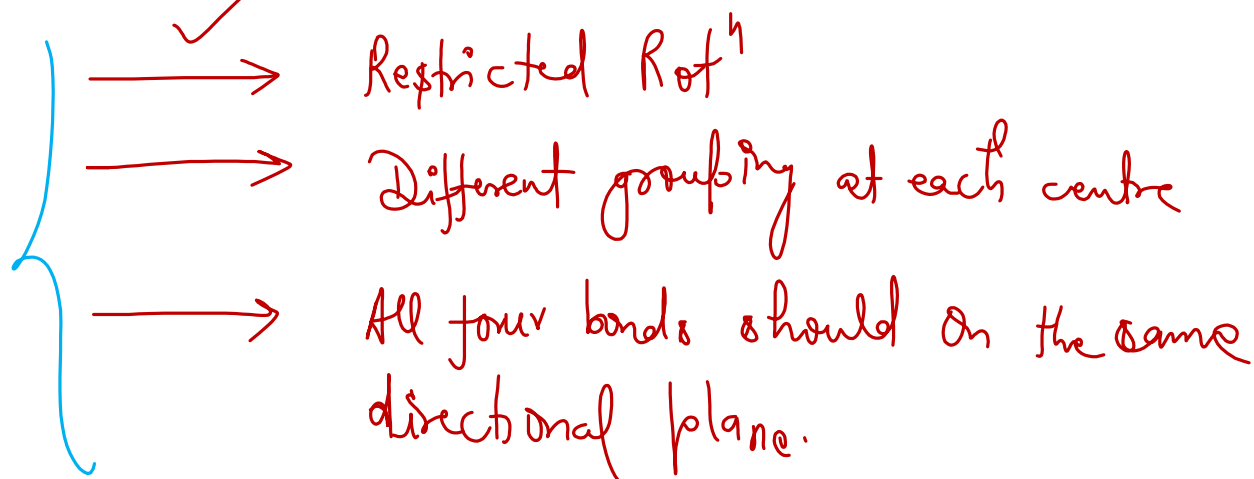 Restricted Rotⁿ
Different grouping at each centre
All four bonds should on the same
directional plane.